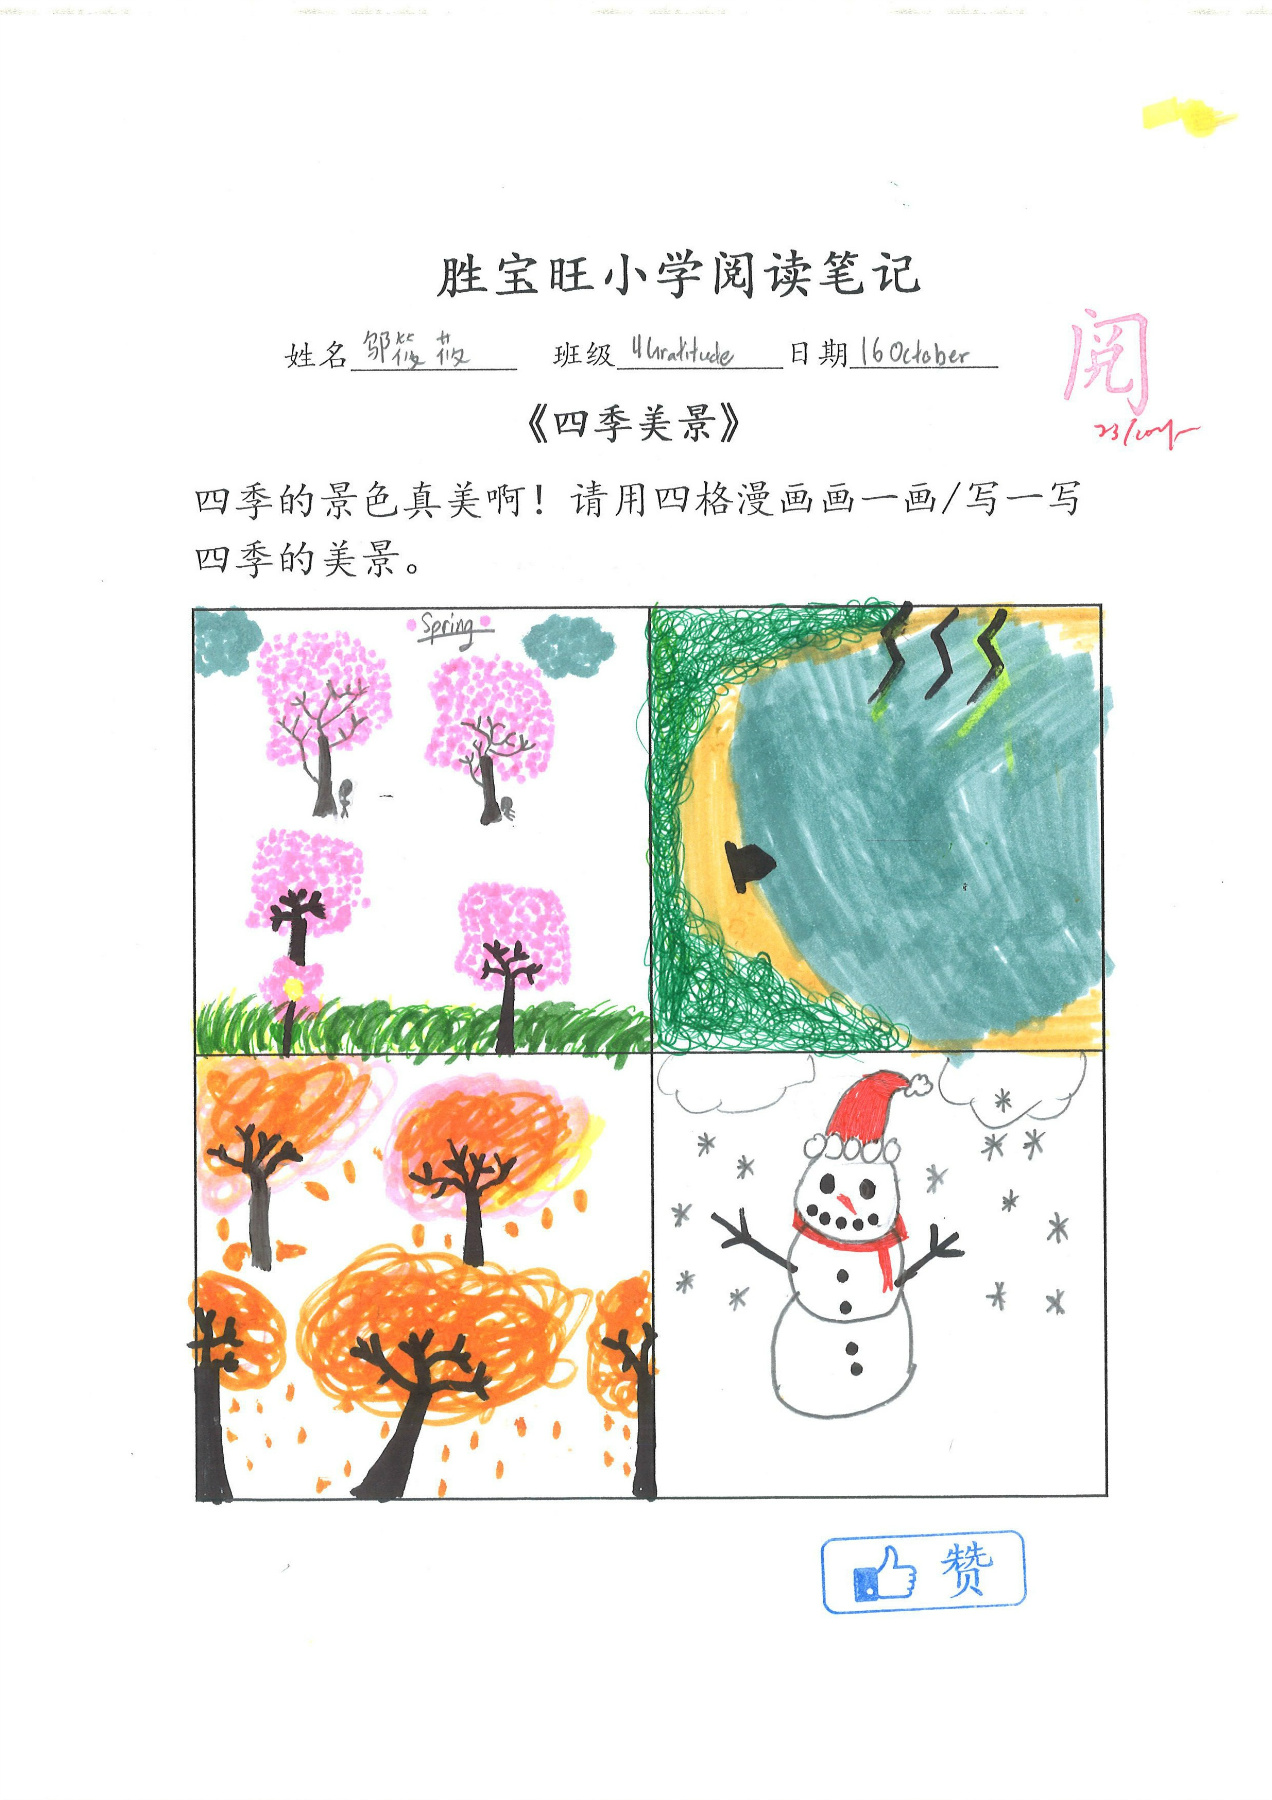 胜宝旺小学阅读笔记
姓名 邬筱莜 班级 4Gratitude 日期 16 October
阅
《四季美景》
四季的景色真美啊！请用四格漫画画一画/写一写
四季的美景。
Spring
赞